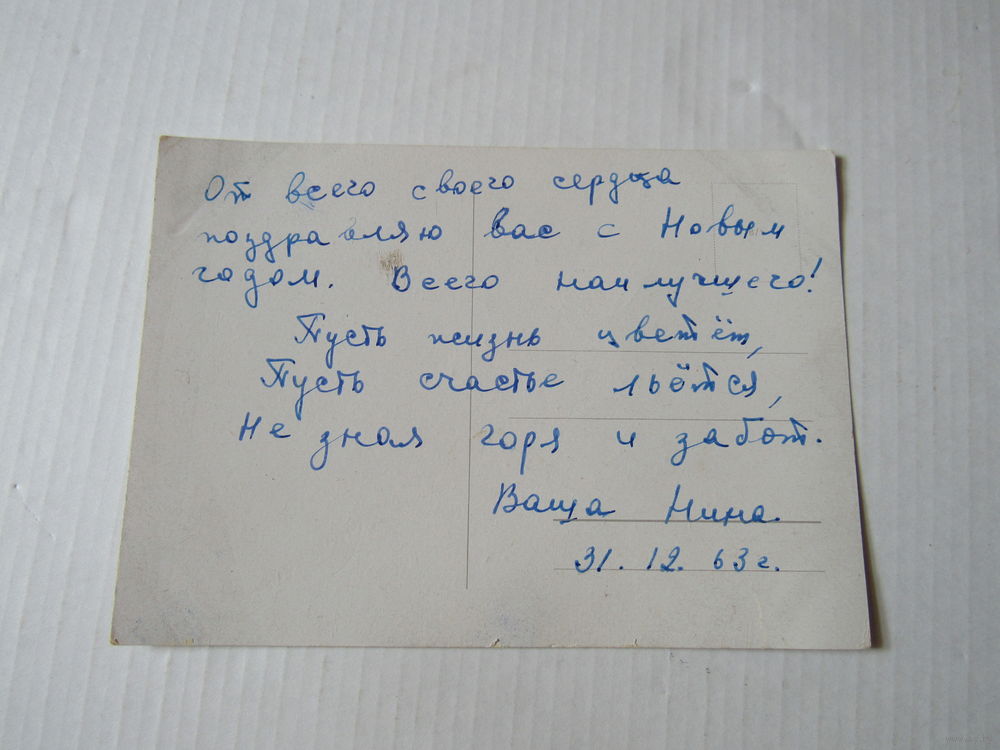 От всего своего сердца
поздравляю вас с Новым
годом. Всего наилучшего!
Пусть жизнь цветёт,
Пусть счастье льётся,
Не зная горя и забот.
Ваша Нина.
31. 12. 63 г.